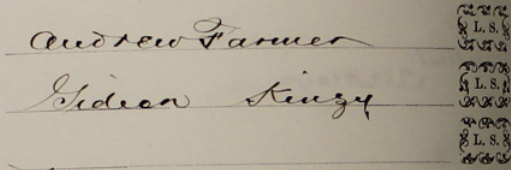 Andrew Farmer L. S.
Gideon Kinzy L. S.
L. S.